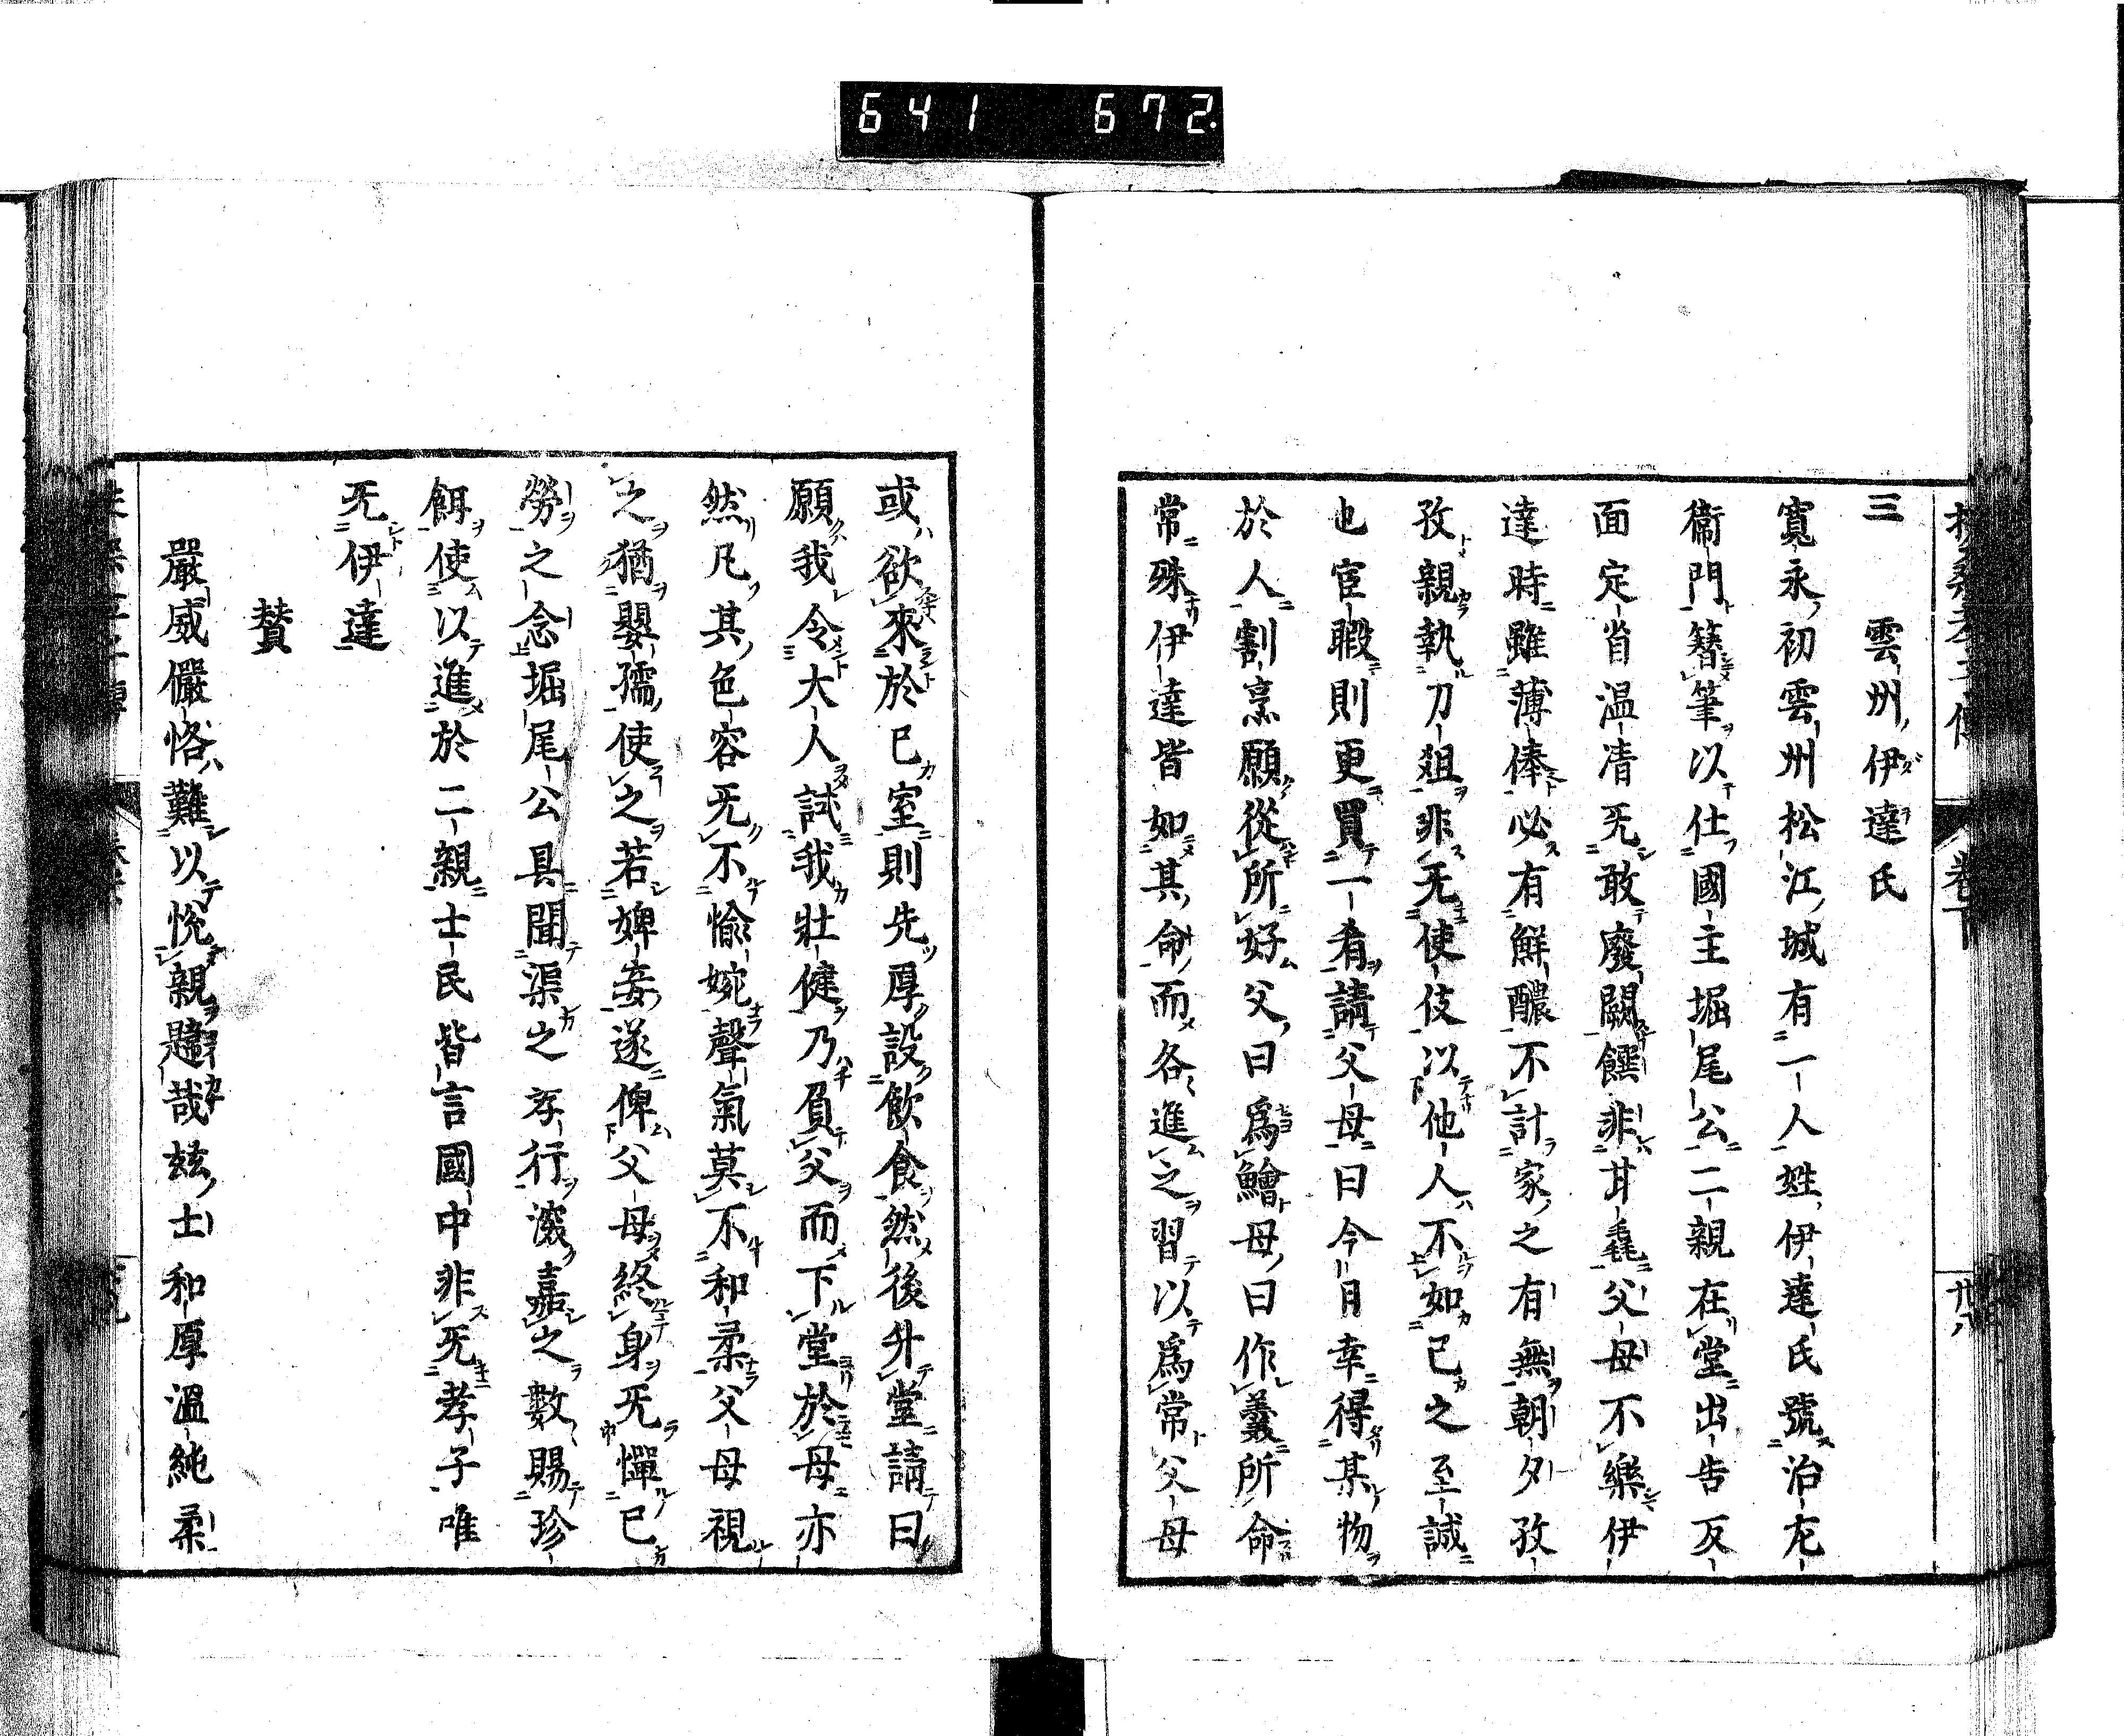 641 672.
三　雲州伊達氏
寬永初雲州松江城有一人姓伊達氏號治左
衞門簪筆以仕國主堀尾公二親在堂出告反
面定省温凊旡敢廢闕饌非甘毳父母不樂伊
達時雖薄俸必有鮮醲不計家之有無朝夕孜
孜親執刀俎非旡使伎以他人不如己之至誠
也宦暇則更買一肴請父母曰今日幸得某物
於人割烹願從所好父曰爲鱠母曰作羹所命
常殊伊達皆如其命而各進之習以爲常父母
或欲來於己室則先厚設飲食然後升堂請曰
願我令大人試我壯健乃負父而下堂於母亦
然凡其色容旡不愉婉聲氣莫不和柔父母視
之猶嬰孺使之若婢妾遂俾父母終身旡憚己
勞之念堀尾公具聞渠之孝行深嘉之數賜珍
餌使以進於二親士民皆言國中非旡孝子唯
旡伊達
賛
嚴威儼恪難以悅親韙哉玆士和厚溫純柔